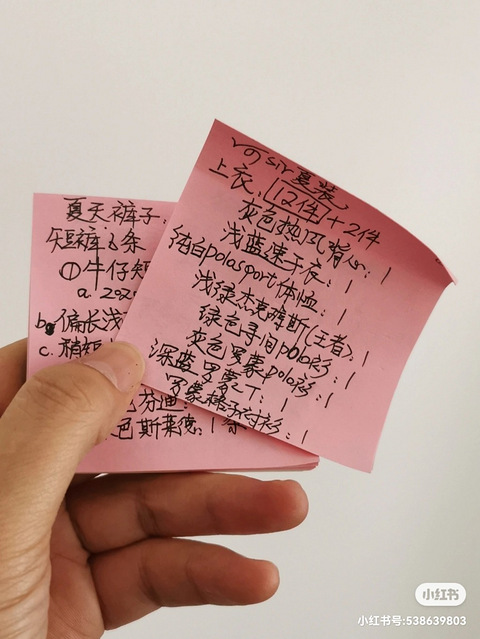 sir夏装
上衣:12件+2件
灰色热风背心:1
浅蓝速干衣:1
纯白polosport体恤:1
浅绿杰克姆斯(王者):1
绿色寻间polo衫:1
灰色罗蒙polo衫:1
深蓝罗蒙T:1
罗蒙格子衬衫:1
夏天裤子:
短裤:3条
①牛仔短
a. 202
b. 偏长浅
c. 稍短
色芬迪:
色斯莱德:1条
小红书
小红书号:538639803